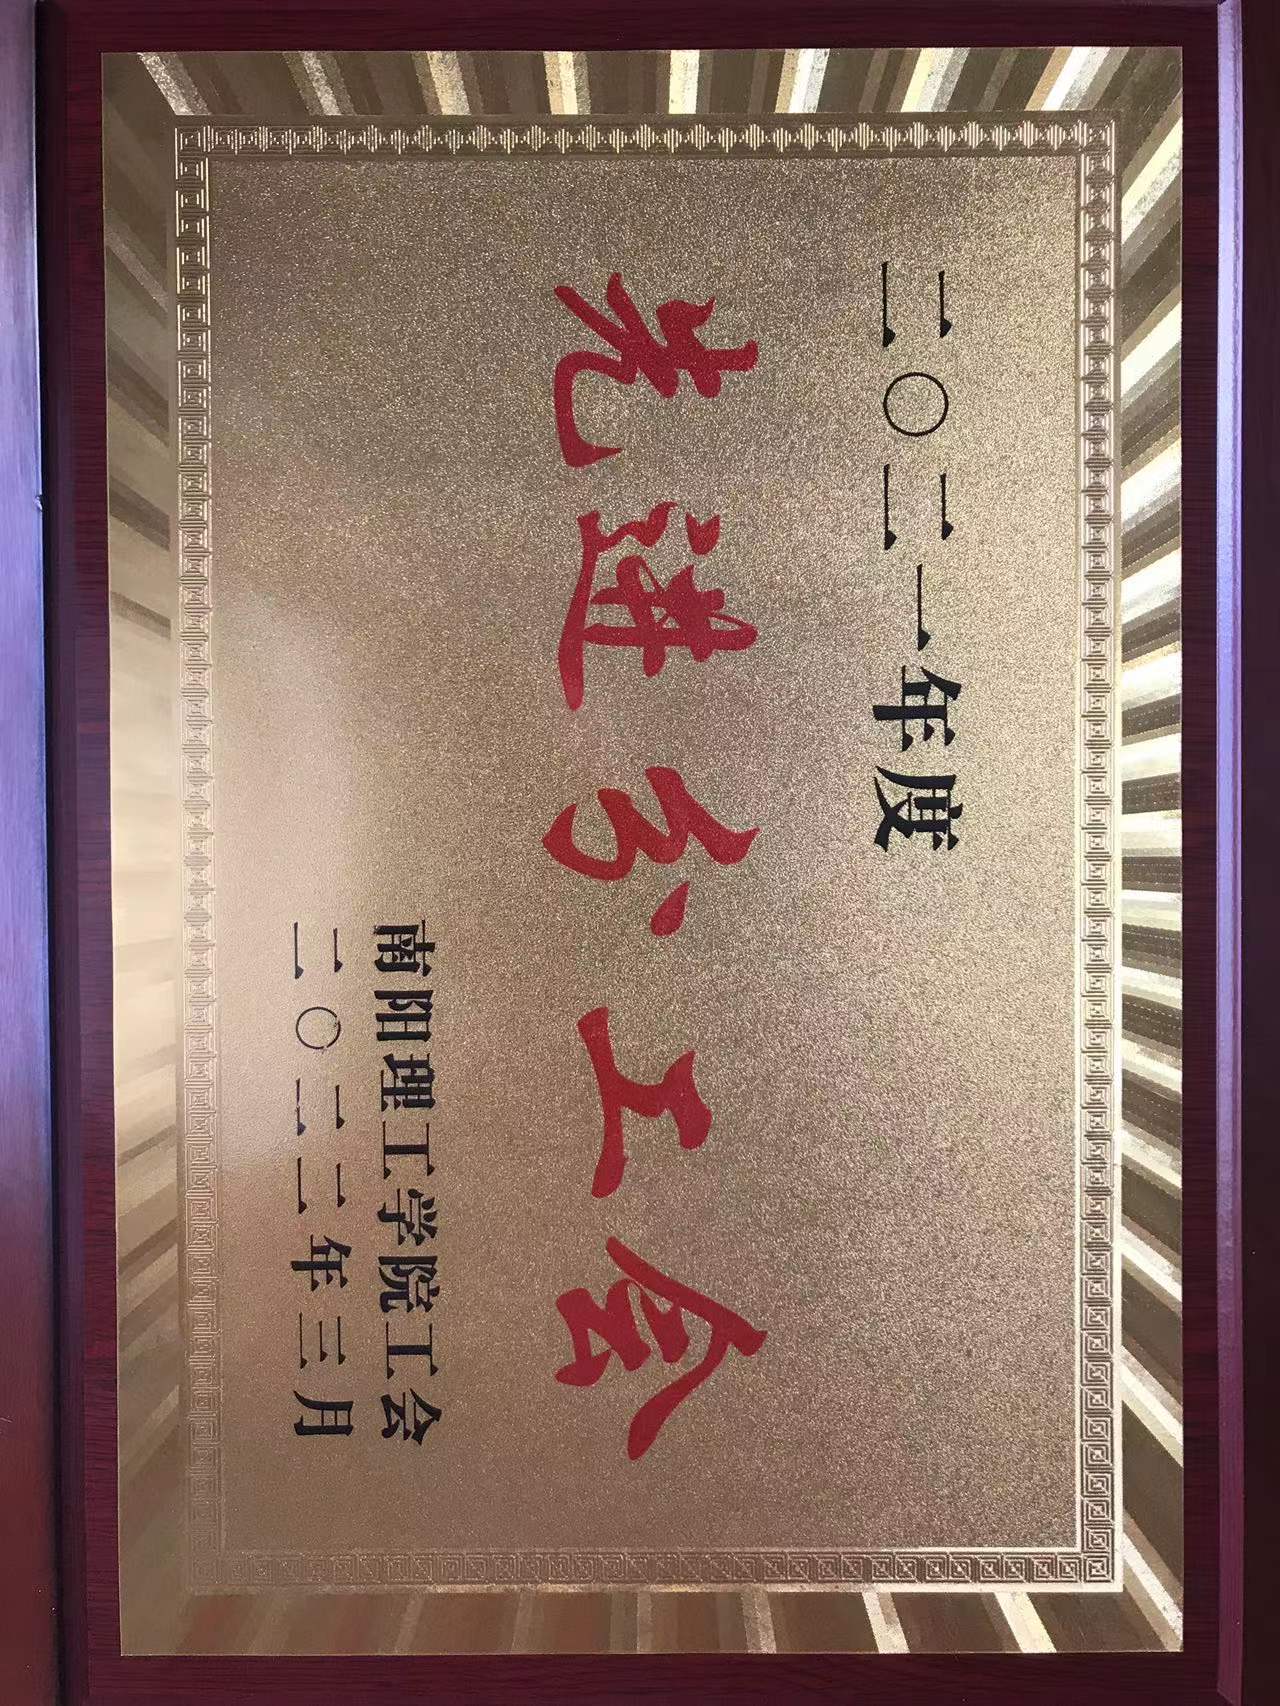 二〇二一年度
先进分工会
南阳理工学院工会
二〇二二年三月